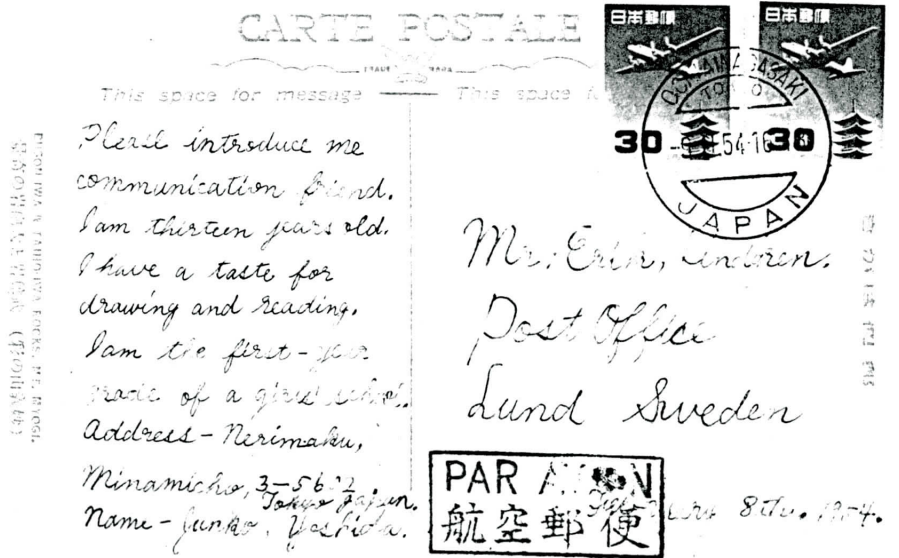 CARTE POSTALE
TRADE MARK
This space for message
This space
日本郵便
日本郵便
30
30
TOKYO
54.16
JAPAN
Please introduce me
communication friend.
I am thirteen years old.
I have a taste for
drawing and reading.
I am the first-year
grade of a girls' school.
Address - Nerimaku,
Minamicho, 3-56
Tokyo Japan.
Name - Junko, Yoshida.
Mr. Erik,
Post Office
Lund Sweden
PAR AVION
航空郵便
8th. 1954.